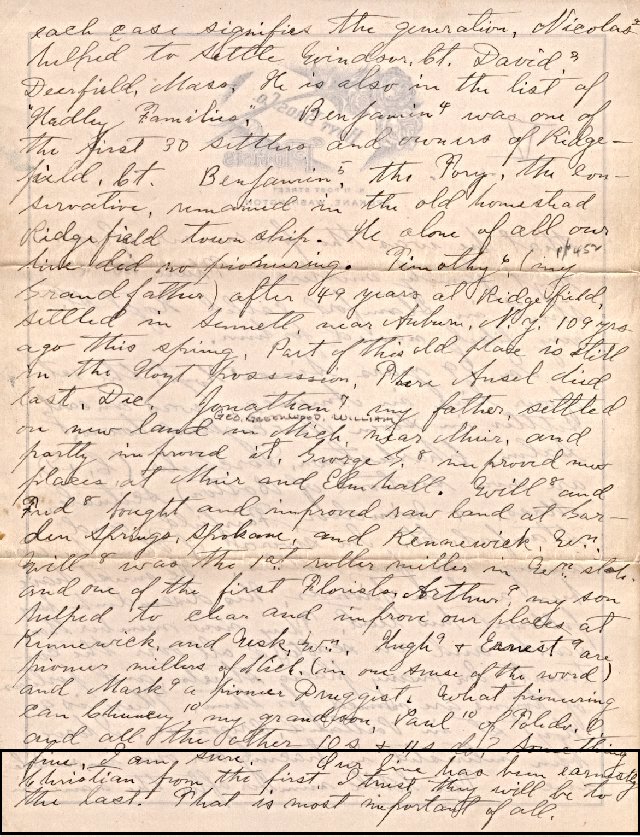 each case signifies the generation, Nicolas²
helped to settle Windsor, Ct. David³
Deerfield, Mass. He is also in the list of
"Hadley Families," Benjamin⁴ was one of
the first 30 settlers and owners of Ridge-
field, Ct. Benjamin⁵, the Tory, the con-
servative, remained in the old homestead
Ridgefield township. He alone of all our
line did no pioneering. Timothy⁶, (my
grandfather) after 49 years at Ridgefield,
settled in Sennett, near Auburn, N.Y. 109 yrs.
ago this spring. Part of this old place is still
in the Hoyt possession, Where Ansel died
last Dec. Jonathan⁷ my father, settled
GEO, GREENWOOD, WILLIAM
on new land in Mich. near Muir, and
partly improved it, George G.⁸ improved new
places at Muir and Elmhall. Will⁸ and
Fred⁸ bought and improved raw land at Gar-
den Springs, Spokane, and Kennewick Wn.
Will⁸ was the 1st. roller miller in Wn. state
and one of the first Florists, Arthur⁹, my son
helped to clear and improve our places at
Kennewick, and Usk, Wn. Hugh⁹ & Ernest⁹ are
pioneer millers of Mich. (in one sense of the word)
and Mark⁹ a pioneer Druggist. What pioneering
can Chuncey¹⁰, my grandson, Paul¹⁰ of Toledo, O
and all the other 10s & 11s do? Something
fine, I am sure. Our line has been earnestly
Christian from the first, I trust they will be to
the last. That is most important of all.